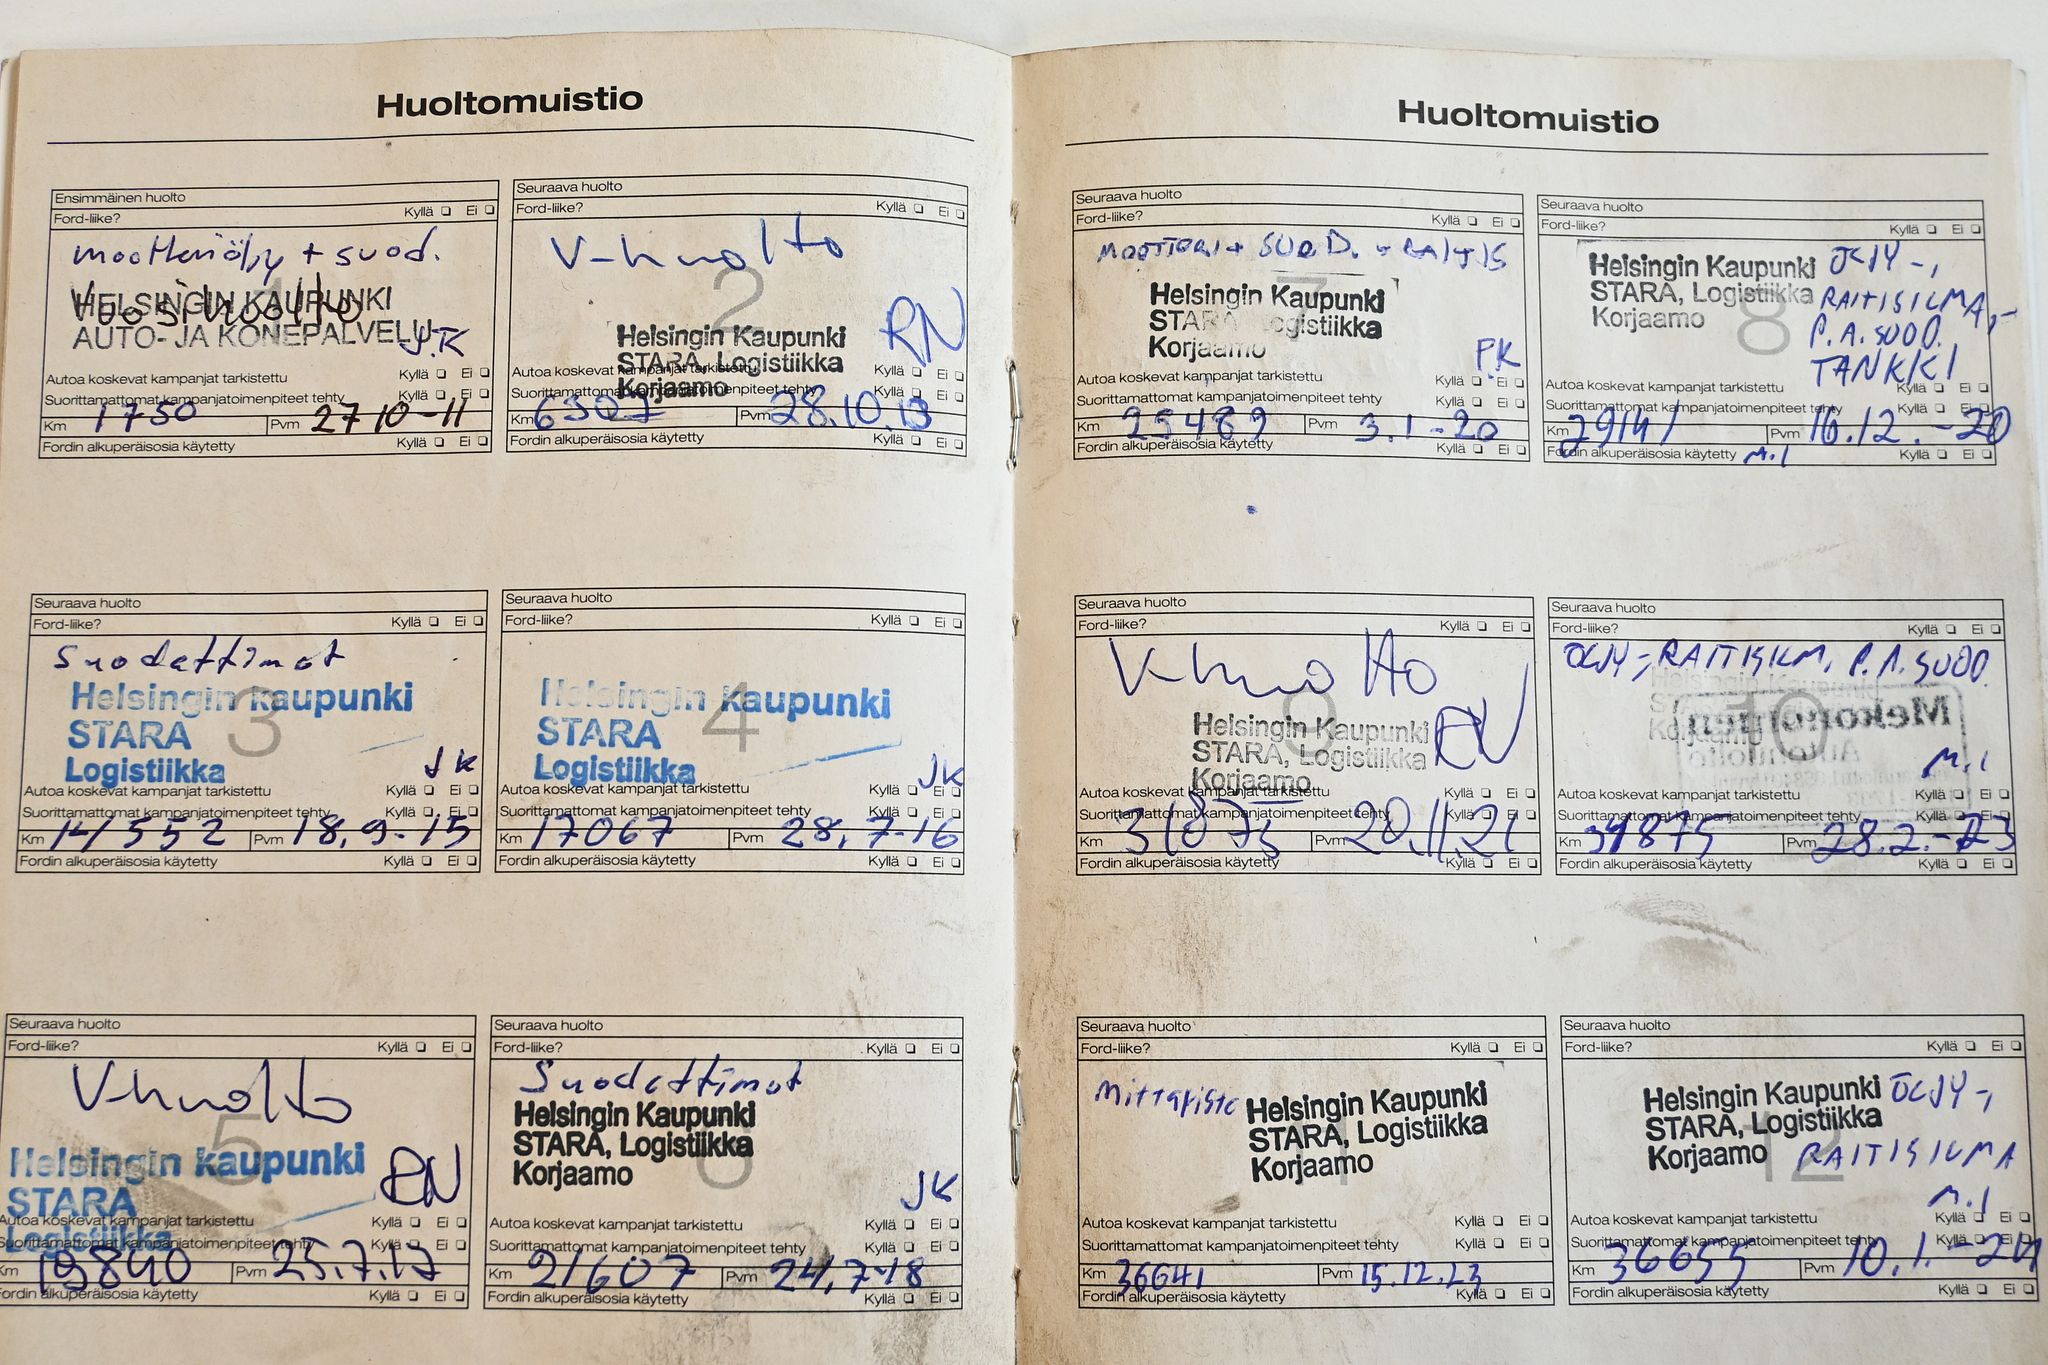 Huoltomuistio
Ensimmäinen huolto
Ford-liike? Kyllä Ei
moottoriöljy + suod.
Vuosihuolto
HELSINGIN KAUPUNKI
AUTO- JA KONEPALVELU
J.K
Autoa koskevat kampanjat tarkistettu Kyllä Ei
Suorittamattomat kampanjatoimenpiteet tehty Kyllä Ei
Km 1750 Pvm 27 10-11
Fordin alkuperäisosia käytetty Kyllä Ei
Seuraava huolto
Ford-liike? Kyllä Ei
V-huolto
RN
Helsingin Kaupunki
STARA, Logistiikka
Korjaamo
Autoa koskevat kampanjat tarkistettu Kyllä Ei
Suorittamattomat kampanjatoimenpiteet tehty Kyllä Ei
Km 6307 Pvm 28.10.13
Fordin alkuperäisosia käytetty Kyllä Ei
Seuraava huolto
Ford-liike? Kyllä Ei
Suodattimot
3
Helsingin kaupunki
STARA
Logistiikka
JK
Autoa koskevat kampanjat tarkistettu Kyllä Ei
Suorittamattomat kampanjatoimenpiteet tehty Kyllä Ei
Km 14552 Pvm 18.9-15
Fordin alkuperäisosia käytetty Kyllä Ei
Seuraava huolto
Ford-liike? Kyllä Ei
4
Helsingin kaupunki
STARA
Logistiikka
JK
Autoa koskevat kampanjat tarkistettu Kyllä Ei
Suorittamattomat kampanjatoimenpiteet tehty Kyllä Ei
Km 17067 Pvm 28.7-16
Fordin alkuperäisosia käytetty Kyllä Ei
Seuraava huolto
Ford-liike? Kyllä Ei
V-huolto
5
Helsingin kaupunki
STARA
Logistiikka
RN
Autoa koskevat kampanjat tarkistettu Kyllä Ei
Suorittamattomat kampanjatoimenpiteet tehty Kyllä Ei
Km 19840 Pvm 25.7.17
Fordin alkuperäisosia käytetty Kyllä Ei
Seuraava huolto
Ford-liike? Kyllä Ei
Suodattimot
6
Helsingin Kaupunki
STARA, Logistiikka
Korjaamo
JK
Autoa koskevat kampanjat tarkistettu Kyllä Ei
Suorittamattomat kampanjatoimenpiteet tehty Kyllä Ei
Km 21607 Pvm 24.7-18
Fordin alkuperäisosia käytetty Kyllä Ei
Huoltomuistio
Seuraava huolto
Ford-liike? Kyllä Ei
MOOTTORI + SUOD. + RAITIS
7
Helsingin Kaupunki
STARA, Logistiikka
Korjaamo
P.K
Autoa koskevat kampanjat tarkistettu Kyllä Ei
Suorittamattomat kampanjatoimenpiteet tehty Kyllä Ei
Km Pvm 3.1-20
Fordin alkuperäisosia käytetty Kyllä Ei
Seuraava huolto
Ford-liike? Kyllä Ei
8
Helsingin Kaupunki
STARA, Logistiikka
Korjaamo
ÖLJY-,
RAITISILMA,-
P.A.SUOD.
TANKKI
Autoa koskevat kampanjat tarkistettu Kyllä Ei
Suorittamattomat kampanjatoimenpiteet tehty Kyllä Ei
Km 29141 Pvm 16.12.-20
Fordin alkuperäisosia käytetty M.I Kyllä Ei
Seuraava huolto
Ford-liike? Kyllä Ei
V-huolto
9
Helsingin Kaupunki
STARA, Logistiikka
Korjaamo
RN
Autoa koskevat kampanjat tarkistettu Kyllä Ei
Suorittamattomat kampanjatoimenpiteet tehty Kyllä Ei
Km 31873 Pvm 20.11.21
Fordin alkuperäisosia käytetty Kyllä Ei
Seuraava huolto
Ford-liike? Kyllä Ei
ÖLJY-, RAITISILM, P.A.SUOD.
10
Helsingin Kaupunki
Korjaamo
Mekonomen
Autohuolto
M.I
Autoa koskevat kampanjat tarkistettu Kyllä Ei
Suorittamattomat kampanjatoimenpiteet tehty Kyllä Ei
Km Pvm 28.2.-23
Fordin alkuperäisosia käytetty Kyllä Ei
Seuraava huolto
Ford-liike? Kyllä Ei
Mittapiste
Helsingin Kaupunki
STARA, Logistiikka
Korjaamo
Autoa koskevat kampanjat tarkistettu Kyllä Ei
Suorittamattomat kampanjatoimenpiteet tehty Kyllä Ei
Km 36641 Pvm 15.12.23
Fordin alkuperäisosia käytetty Kyllä Ei
Seuraava huolto
Ford-liike? Kyllä Ei
12
Helsingin Kaupunki
STARA, Logistiikka
Korjaamo
ÖLJY-,
RAITISILMA
M.I
Autoa koskevat kampanjat tarkistettu Kyllä Ei
Suorittamattomat kampanjatoimenpiteet tehty Kyllä Ei
Km 36655 Pvm 10.1.-24
Fordin alkuperäisosia käytetty Kyllä Ei